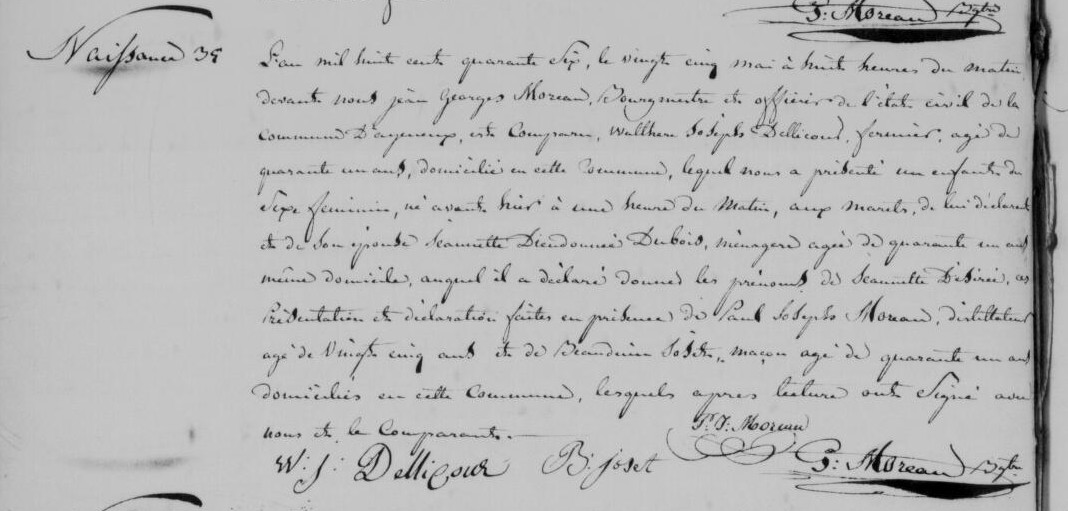 J: Moreau Bgtre
Naissance 35 L'an mil huit cent quarante Six, le vingt cinq mai à huit heures du matin,
devant nous jean Georges Moreau, Bourgmestre et officier de l'état civil de la
commune D'ageneux, est Comparu, Walthere Joseph Dellicour, fermier, agé de
quarante un ans, domicilié en cette Commune, lequel nous a présenté un enfant du
Sexe feminin, né avant hier à une heure du Matin, aux marets, de lui déclarant
et de Son épouse Jeannette Dieudonnée Dubois, ménagere agée de quarante un ans
même domicile, auquel il a déclaré donner les prénoms de Jeannette Désirée, ces
Présentation et déclaration faites en présence de Paul Joseph Moreau, distillateur
agé de Vingt cinq ans et de Beauduin Joset, maçon agé de quarante un ans
domiciliés en cette Commune, lesquels apres lecture ont Signé avec
nous et le Comparant.
P. J. Moreau
W: J: Dellicour B: joset J: Moreau Bgtre